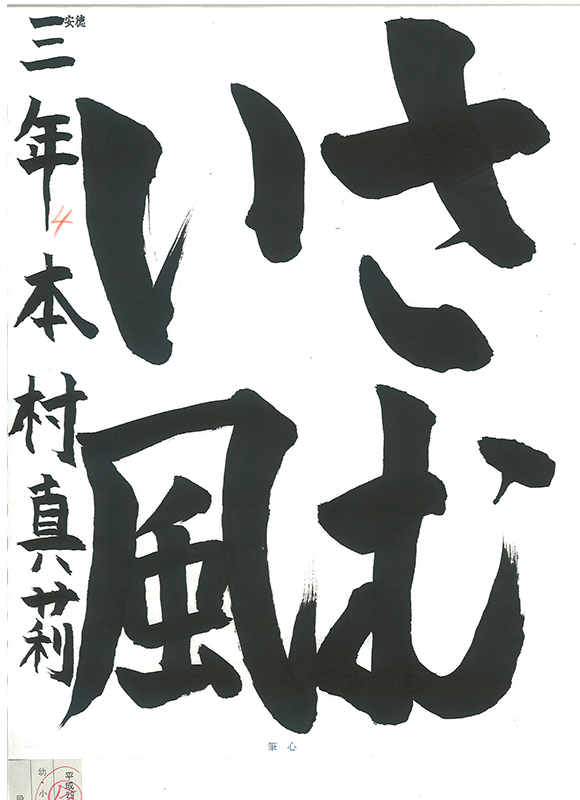 さむ
い風
安徳
三年本村真莉
4
心筆
幼・小
平成25